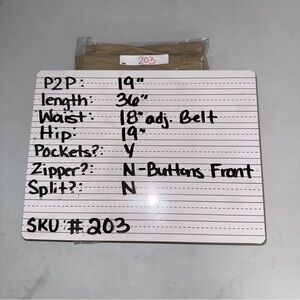 203
P2P: 19"
length: 36"
Waist: 18" adj. Belt
Hip: 19"
Pockets?: Y
Zipper?: N-Buttons Front
Split?: N
SKU #203